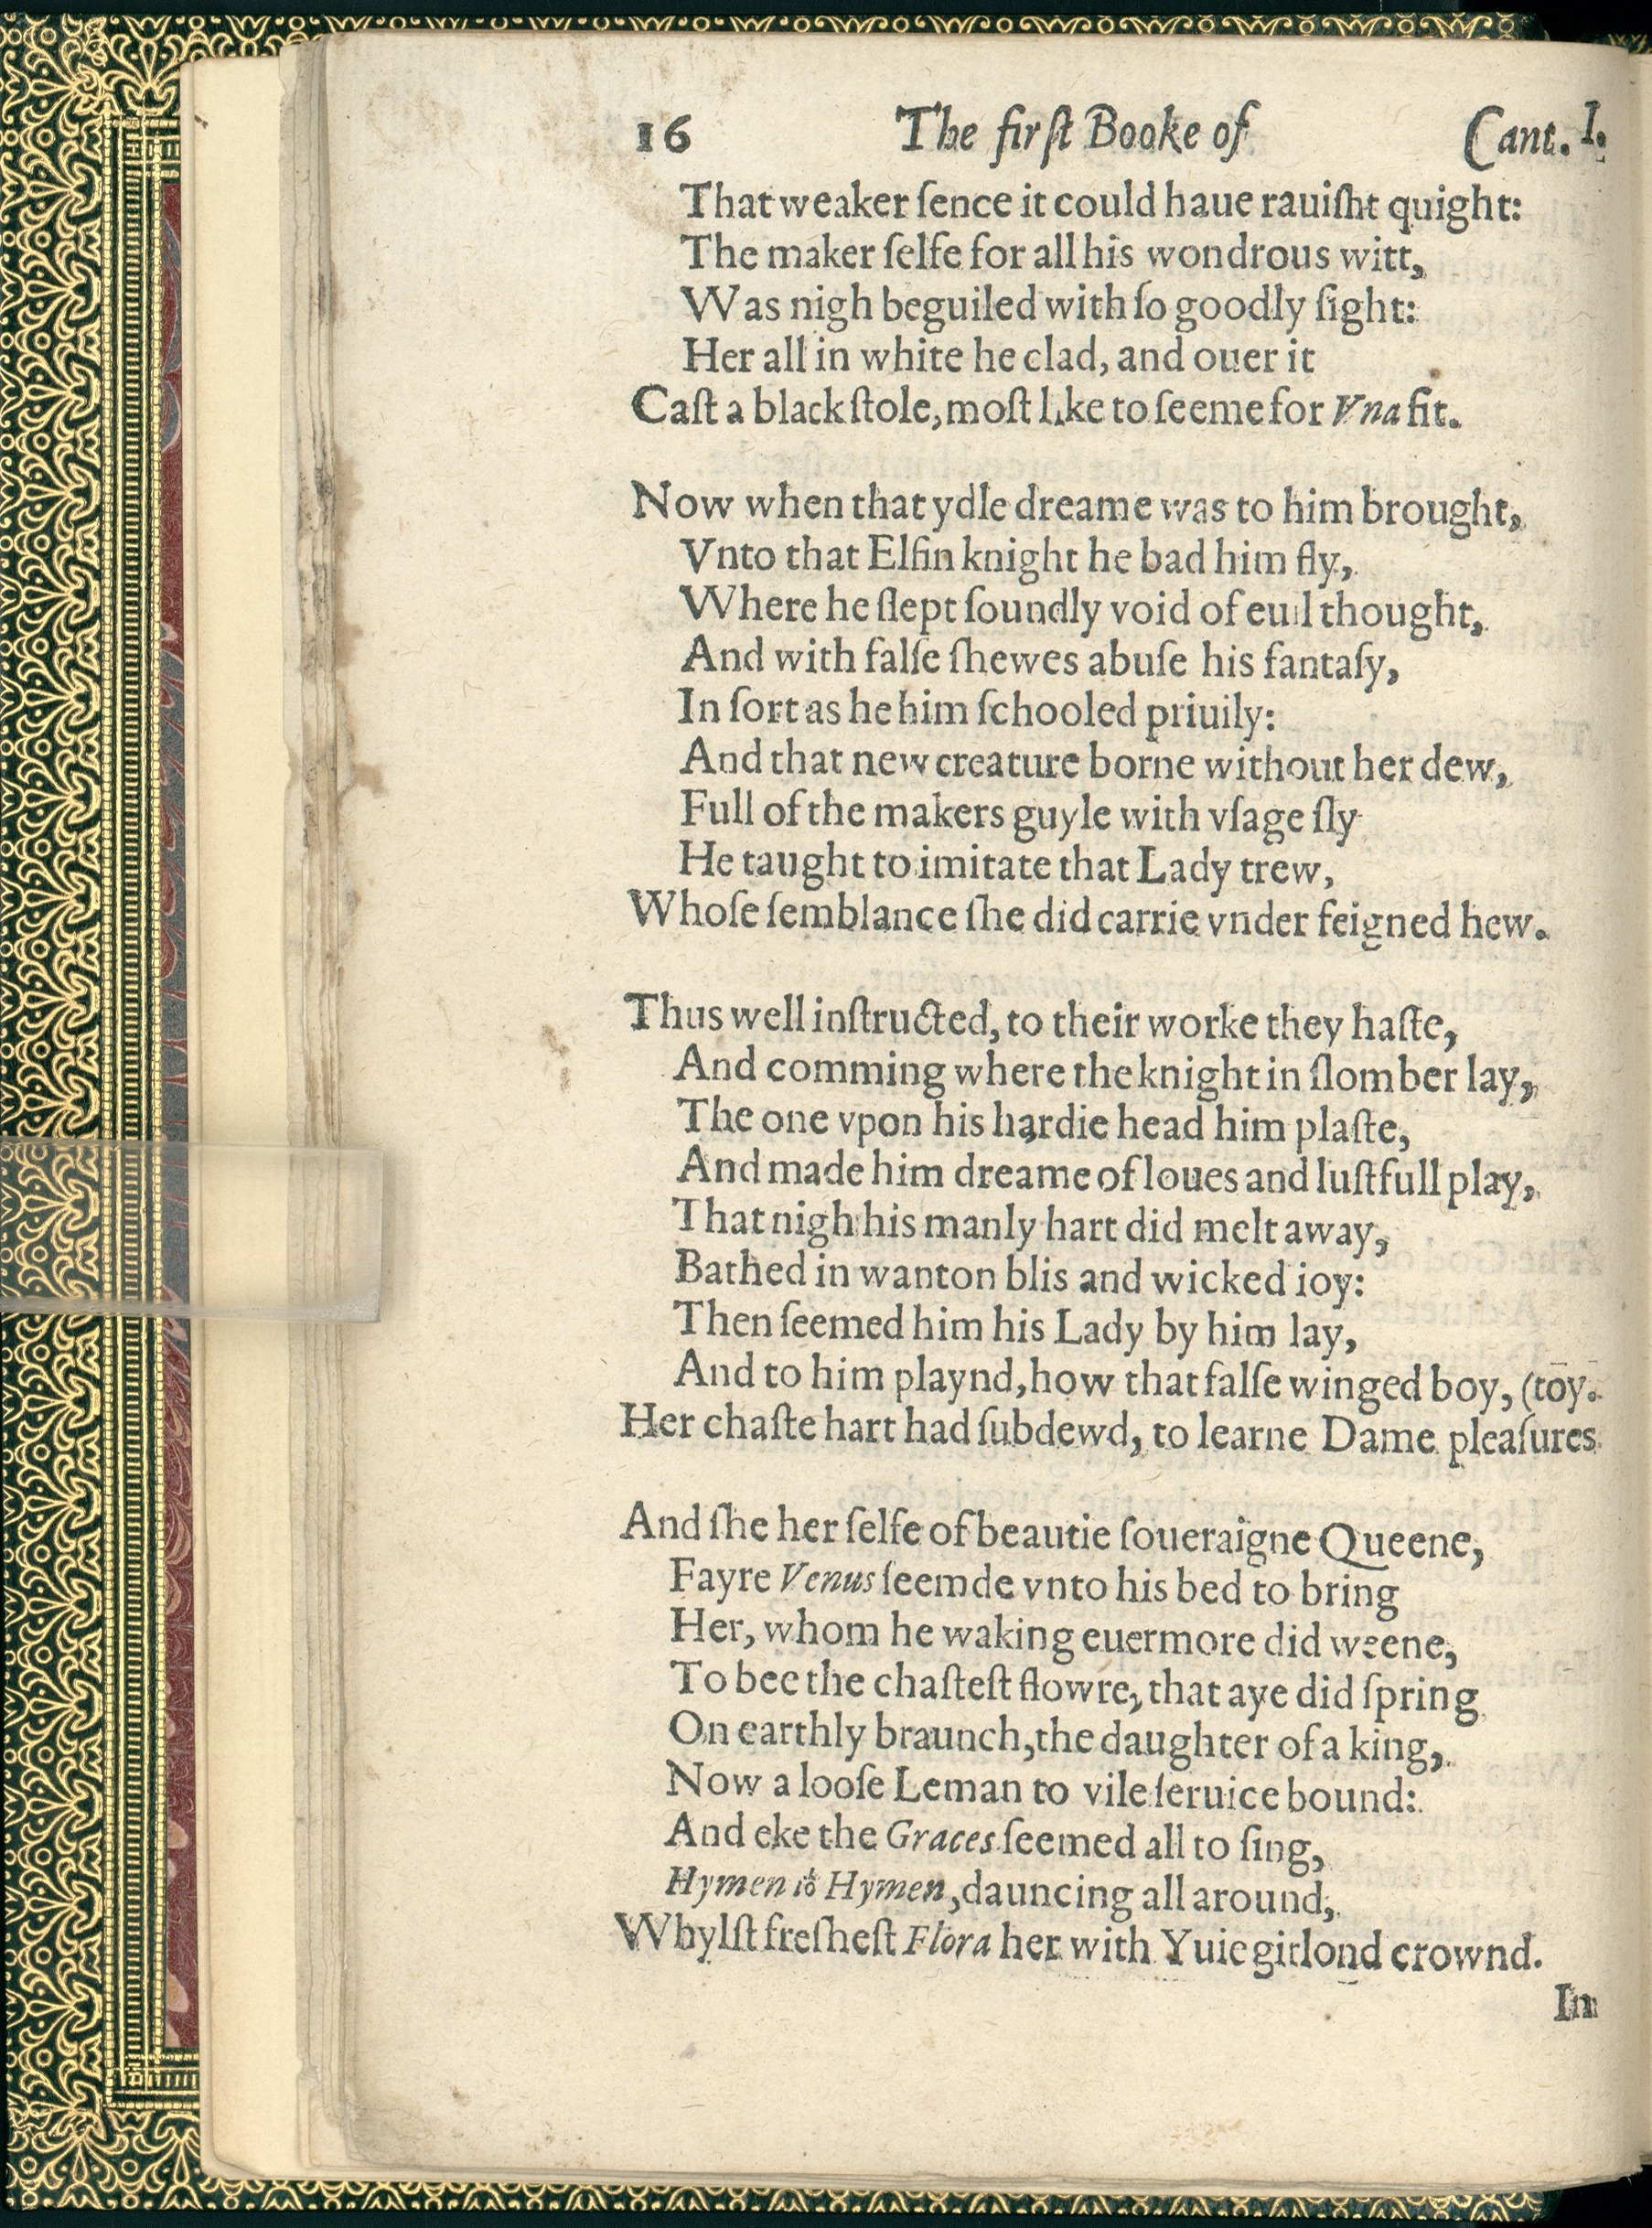 16 The firſt Booke of Cant. I.
That weaker ſence it could haue rauiſht quight:
The maker ſelfe for all his wondrous witt,
Was nigh beguiled with ſo goodly ſight:
Her all in white he clad, and ouer it
Caſt a black ſtole, moſt like to ſeeme for Vna fit.
Now when that ydle dreame was to him brought,
Vnto that Elfin knight he bad him fly,
Where he ſlept ſoundly void of euil thought,
And with falſe ſhewes abuſe his fantaſy,
In ſort as he him ſchooled priuily:
And that new creature borne without her dew,
Full of the makers guyle with vſage ſly
He taught to imitate that Lady trew,
Whoſe ſemblance ſhe did carrie vnder feigned hew.
Thus well inſtructed, to their worke they haſte,
And comming where the knight in ſlomber lay,
The one vpon his hardie head him plaſte,
And made him dreame of loues and luſtfull play,
That nigh his manly hart did melt away,
Bathed in wanton blis and wicked ioy:
Then ſeemed him his Lady by him lay,
And to him playnd, how that falſe winged boy, (toy.
Her chaſte hart had ſubdewd, to learne Dame pleaſures
And ſhe her ſelfe of beautie ſoueraigne Queene,
Fayre Venus ſeemde vnto his bed to bring
Her, whom he waking euermore did weene,
To bee the chaſteſt flowre, that aye did ſpring
On earthly braunch, the daughter of a king,
Now a looſe Leman to vile ſeruice bound:
And eke the Graces ſeemed all to ſing,
Hymen iô Hymen, dauncing all around,
Whylſt freſheſt Flora her with Yuie girlond crownd.
In